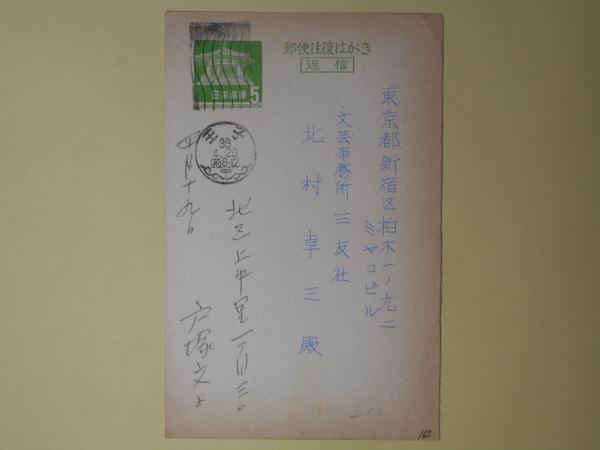 郵便往復はがき
返信
日本郵便
5
王子
39
4.20
前8-12
東京都新宿区柏木一ノ九二
ミヤコビル
文芸事務所 三友社
北村卓三殿
四月十九日
北区上中里一ノ三〇
戸塚文子
210
165